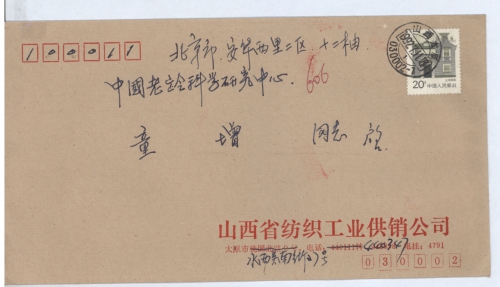 100011
北京市安华西里二区十二楼
606
中国老龄科学研究中心
童增 同志 启
20分 中国人民邮政
山西
030002
山西省纺织工业供销公司
太原市 电话: 电挂: 4791
030002